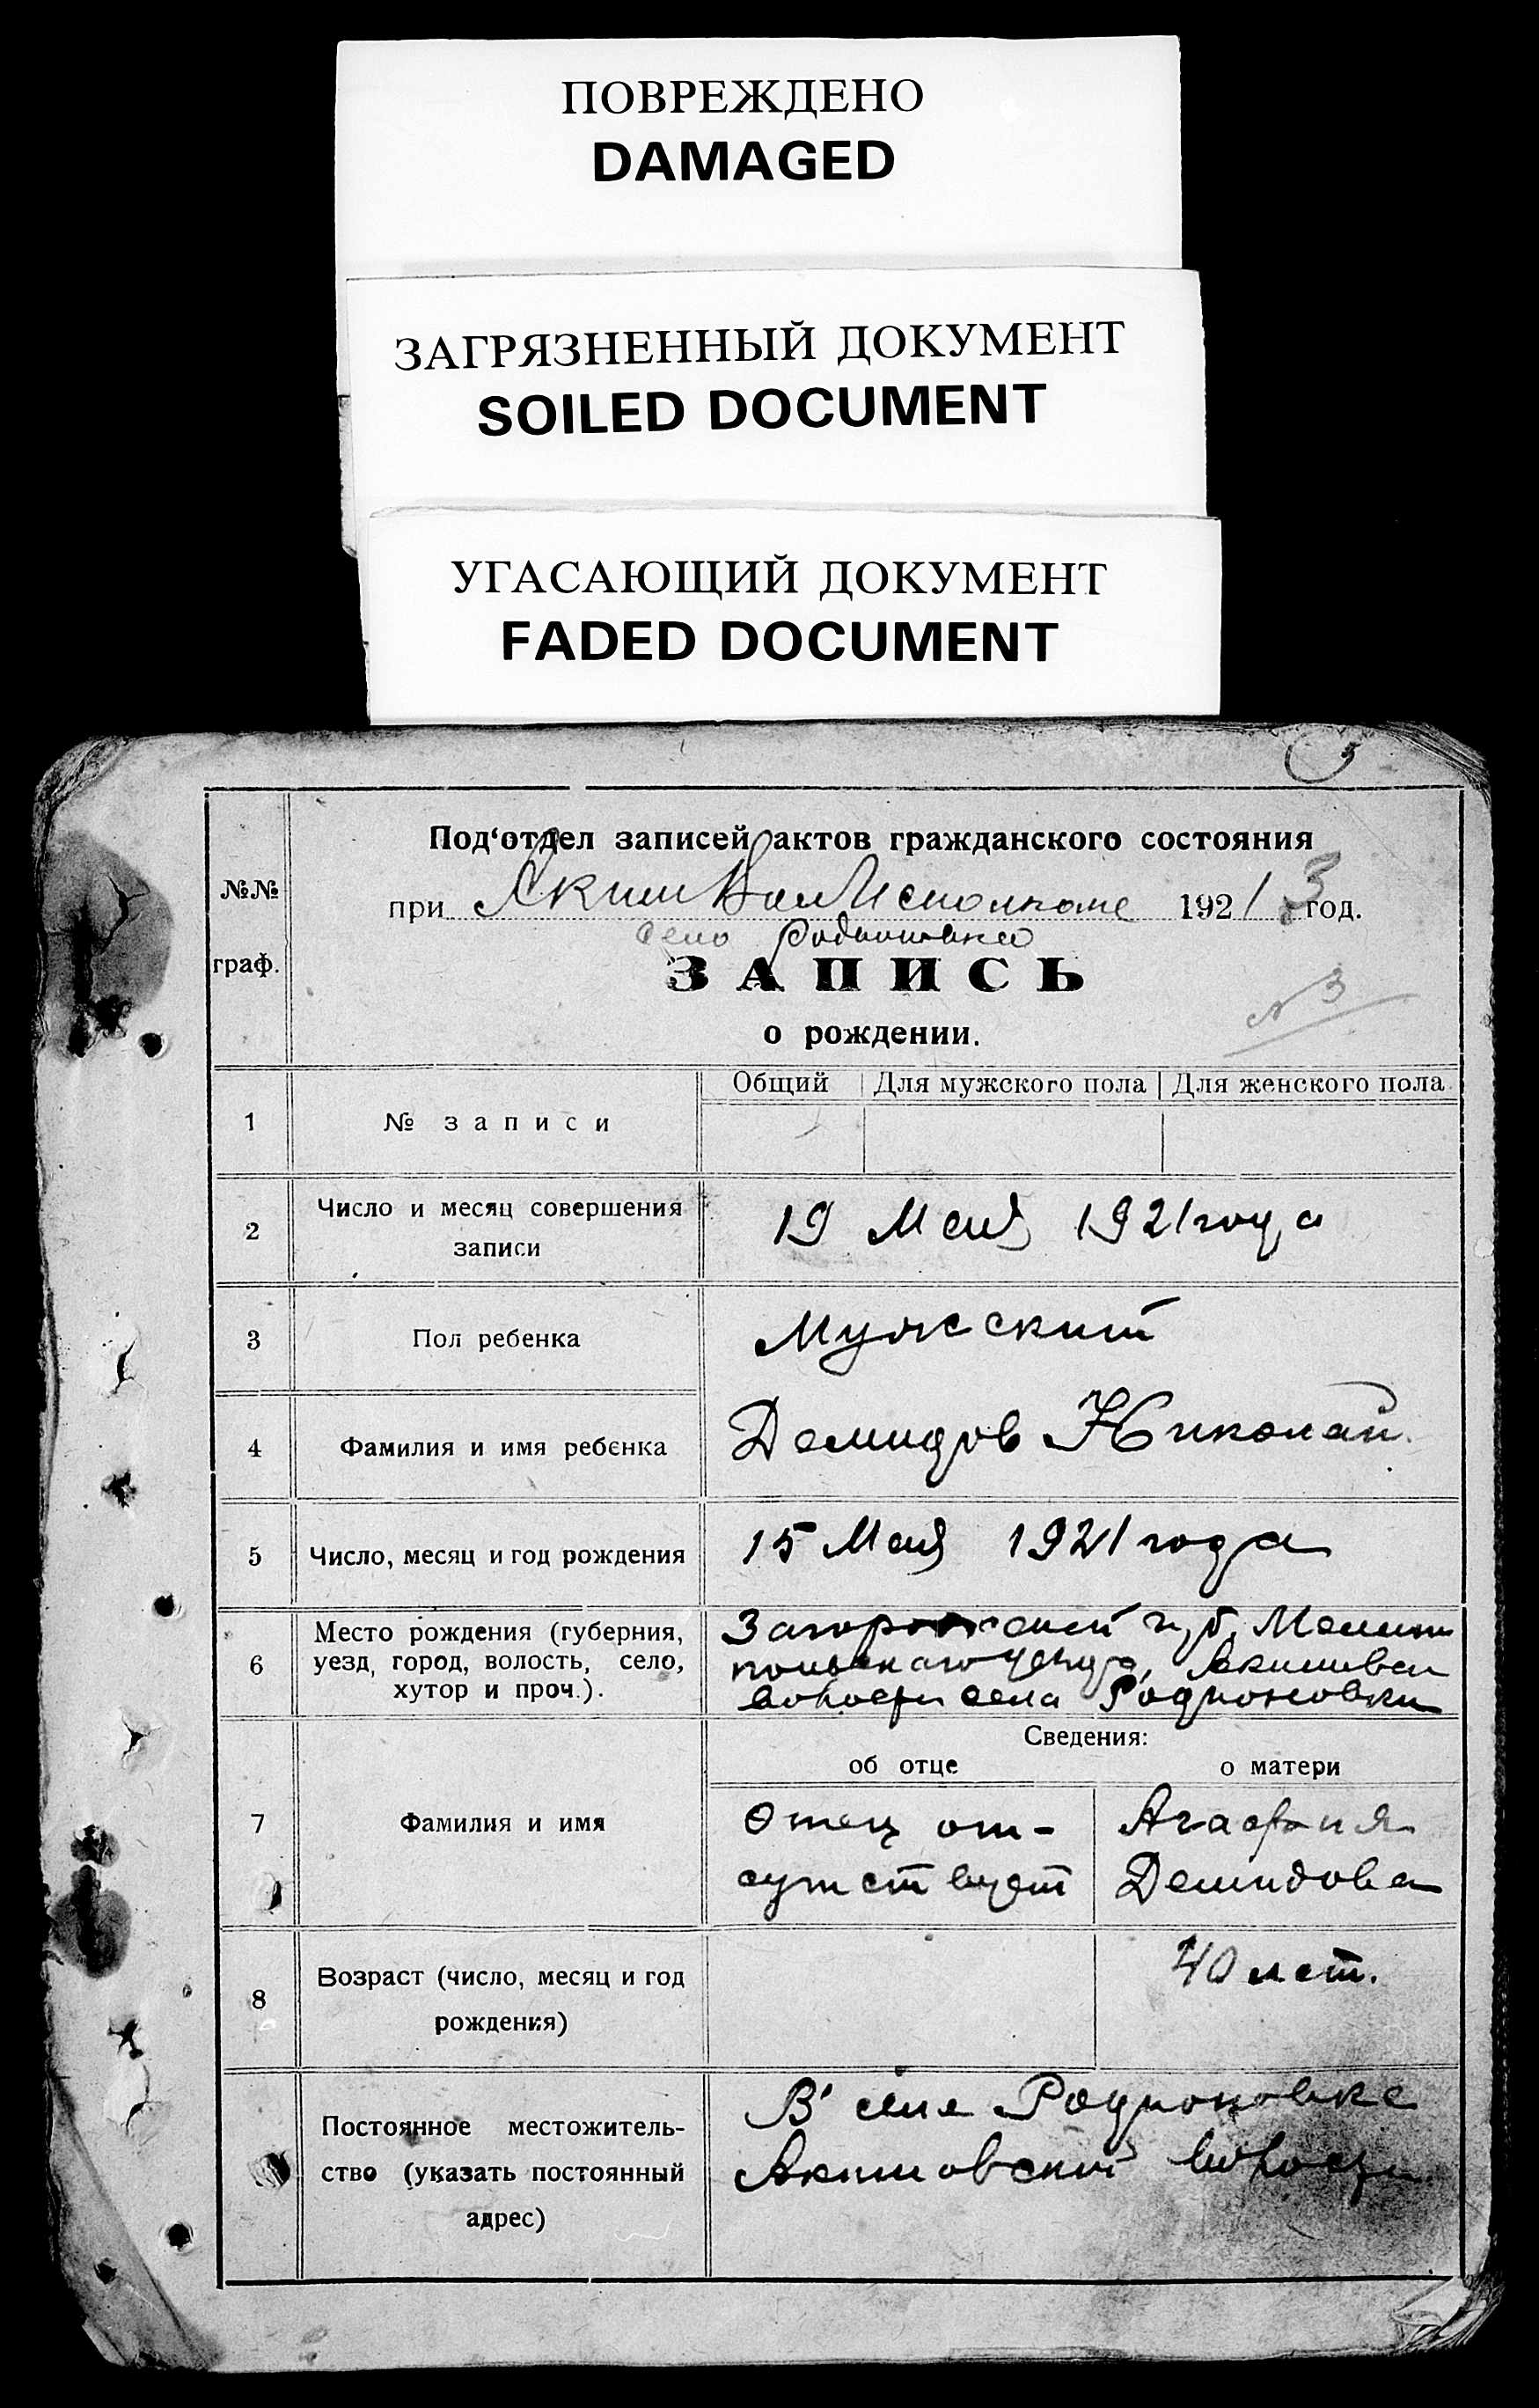 ПОВРЕЖДЕНО
DAMAGED
ЗАГРЯЗНЕННЫЙ ДОКУМЕНТ
SOILED DOCUMENT
УГАСАЮЩИЙ ДОКУМЕНТ
FADED DOCUMENT
№№
граф.
Под'отдел записей актов гражданского состояния
при Аким Вол Исполкоме 1921 год.
3
село Родионовка
ЗАПИСЬ
о рождении.
№ 3
Общий Для мужского пола Для женского пола
1 № записи
2 Число и месяц совершения записи
19 Мая 1921 года
3 Пол ребенка
Мужский
4 Фамилия и имя ребенка
Демидов Николай.
5 Число, месяц и год рождения
15 Мая 1921 года
6 Место рождения (губерния,
уезд, город, волость, село,
хутор и проч.).
губ, Мелито
польскаго уезда, Акимовск
волости села Родионовки
Сведения:
об отце о матери
7 Фамилия и имя
Отец от-
сутствует
Агафия
Демидова
8 Возраст (число, месяц и год
рождения)
40 лет.
Постоянное местожитель-
ство (указать постоянный
адрес)
В селе Родионовке
Акимовской волости